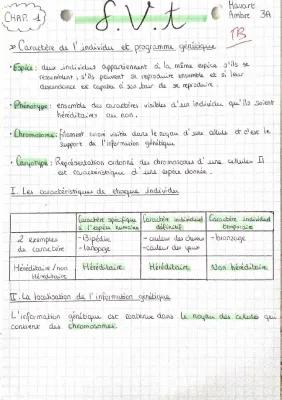 CHAP. 1
S.V.t
Havart
Ambre 3A
TB
» Caractère de l'individu et programme génétique
• Espèce : deux individus appartiennent à la même espèce s'ils se
ressemblent, s'ils peuvent se reproduire ensemble et si leur
descendance est capable à son tour de se reproduire.
• Phénotype : ensemble des caractères visibles d'un individu qu'ils soient
héréditaires ou non.
• Chromosome : filament coloré visible dans le noyau d'une cellule et c'est le
support de l'information génétique
• Caryotype : Représentation ordonné des chromosomes d'une cellule. Il
est caractéristique d'une espèce donnée.
I. Les caractéristiques de chaque individu
Caractère spécifique à l'espèce humaine
Caractère individuel définitif
Caractère individuel temporaire
2 exemples de caractère
- Bipédie
- langage
- couleur des cheveux
- couleur des yeux
- bronzage
Héréditaire / non Héréditaire
Héréditaire
Héréditaire
Non héréditaire
II. La localisation de l'information génétique
L'information génétique est contenue dans le noyau des cellules qui
contient des chromosomes.